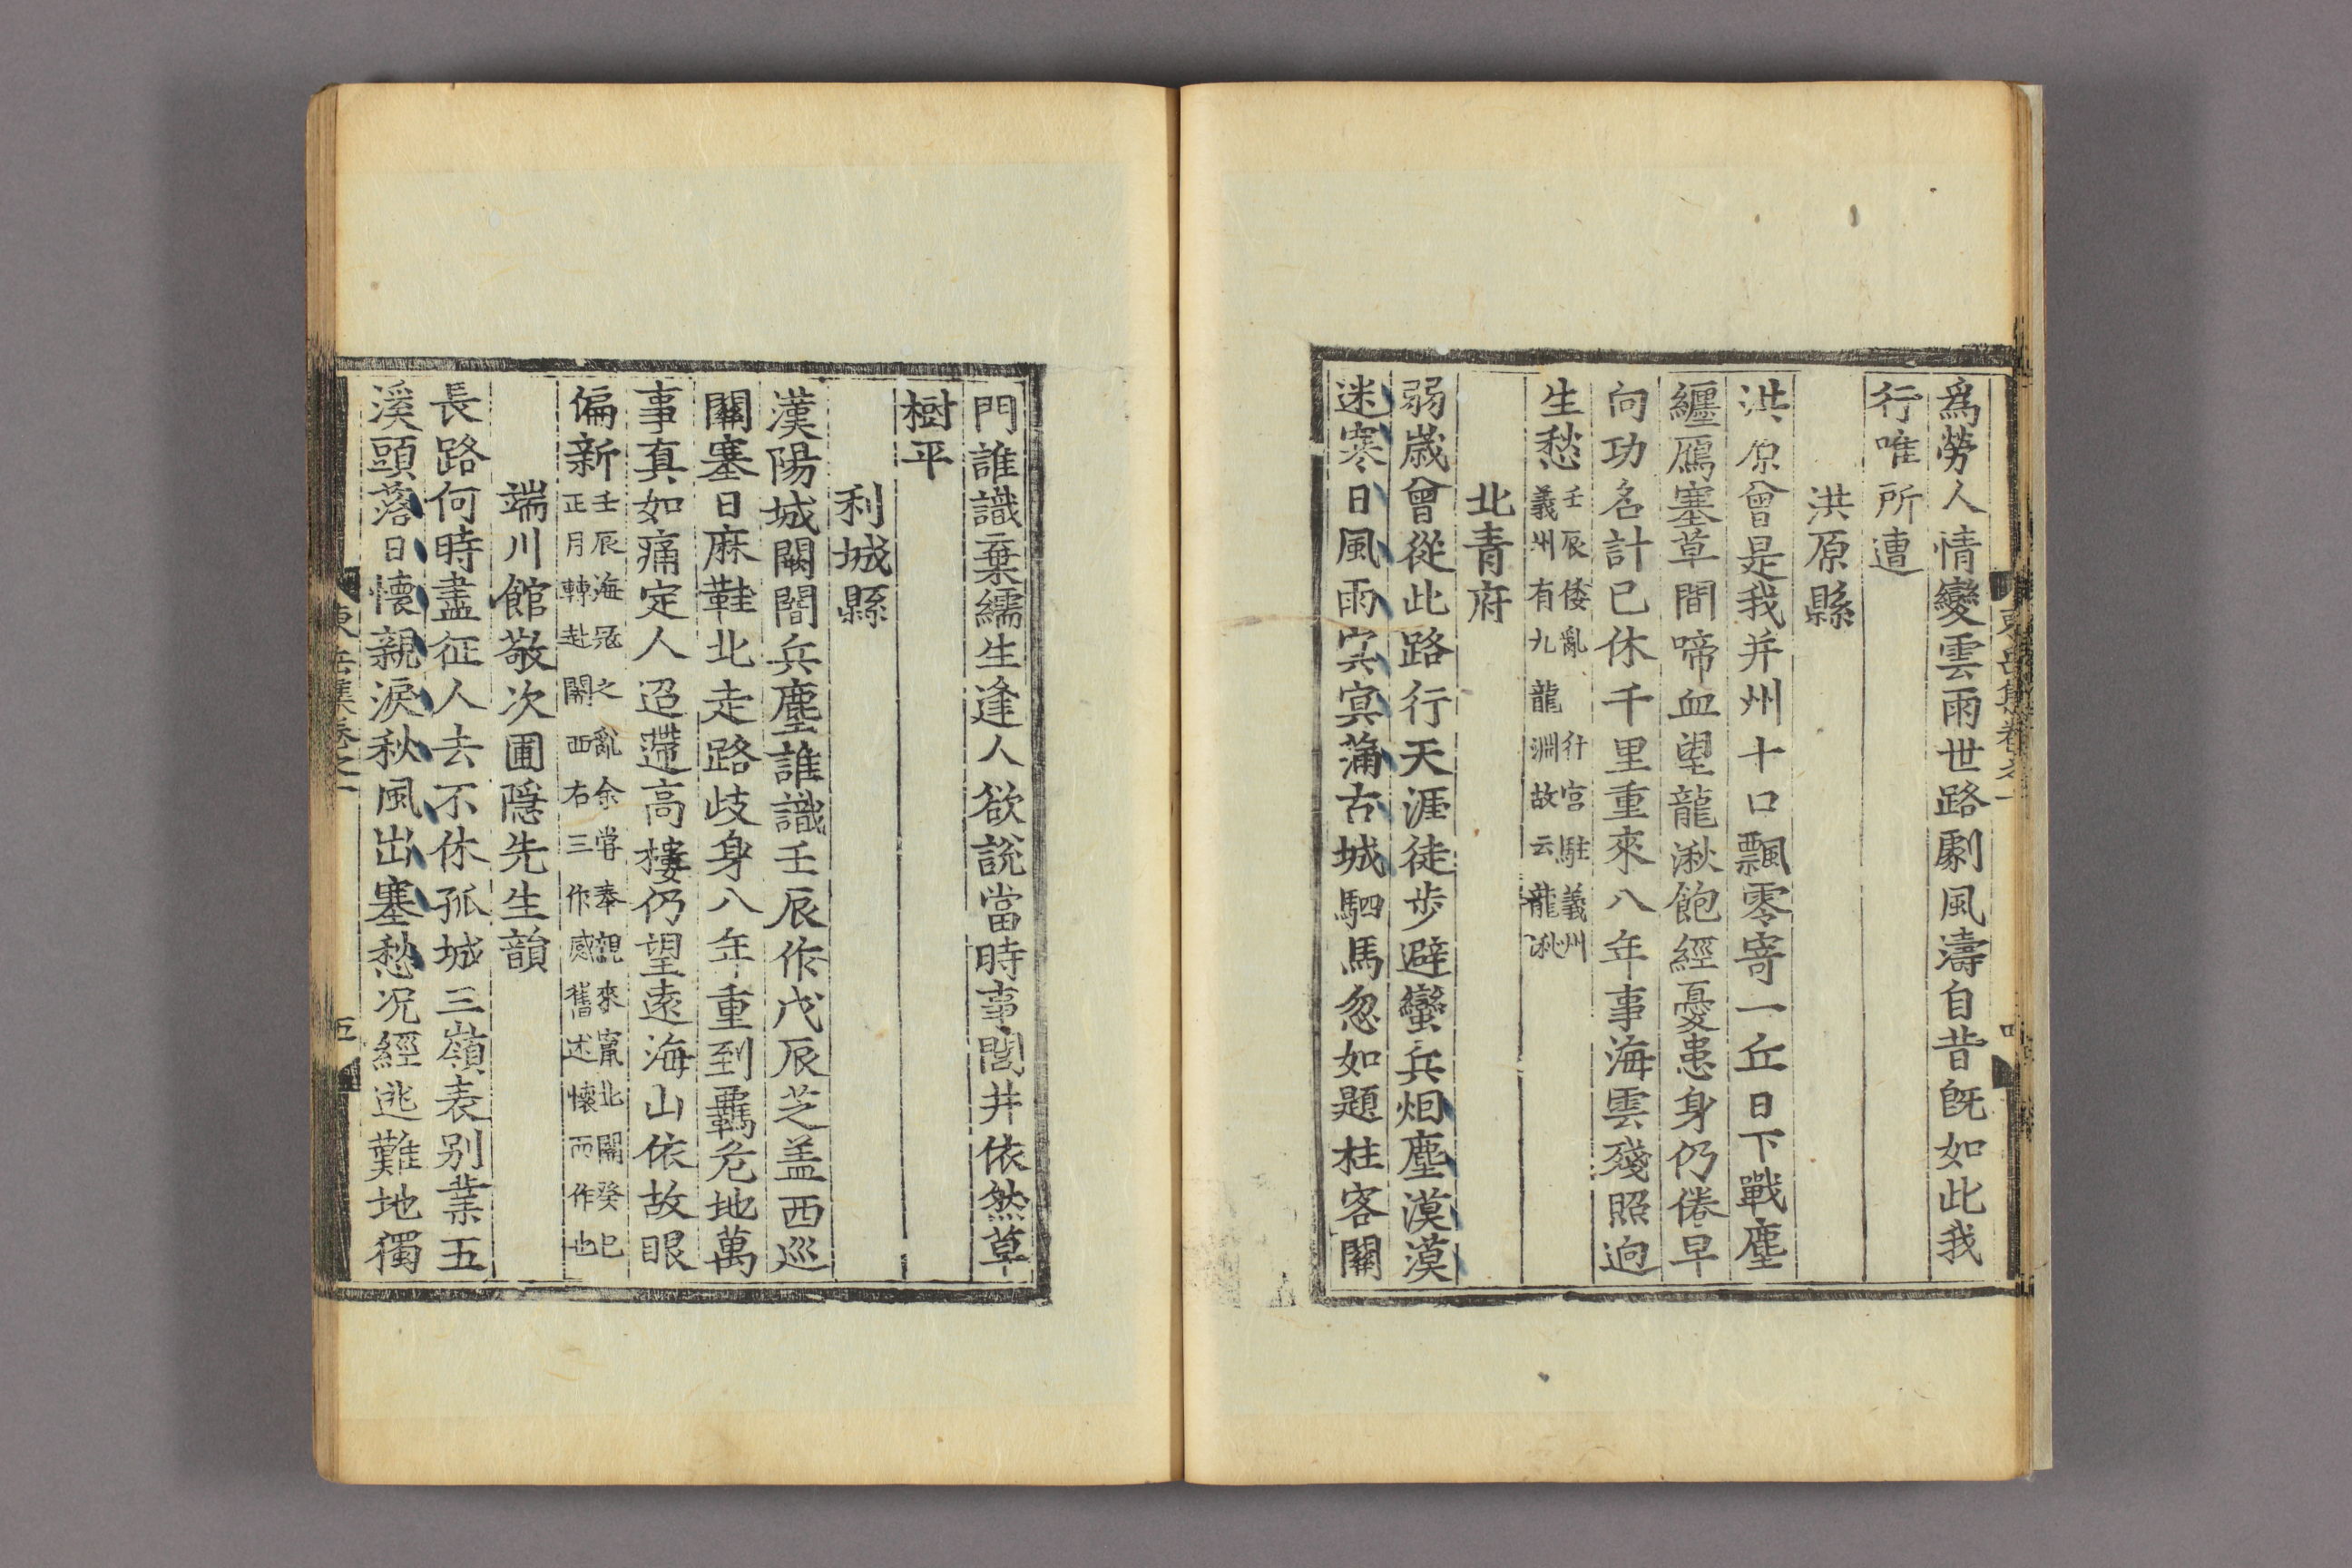 爲勞人情變雲雨世路劇風濤自昔旣如此我
行唯所遭
洪原縣
洪原曾是我幷州十口飄零寄一丘日下戰塵
纏鴈塞草間啼血望龍湫飽經憂患身仍倦早
向功名計已休千里重來八年事海雲殘照逈
生愁
壬辰倭亂行宮駐義州
義州有九龍淵故云龍湫
北靑府
弱歲曾從此路行天涯徒步避蠻兵烟塵漠漠
迷寒日風雨冥冥蒲古城駟馬忽如題柱客關
門誰識棄繻生逢人欲說當時事閭井依然草
樹平
利城縣
漢陽城闕闇兵塵誰識壬辰作戊辰芝盖西巡
關塞日麻鞋北走路歧身八年重到羈危地萬
事眞如痛定人迢遰高樓仍望遠海山依故眼
偏新
壬辰海冦之亂余嘗奉親來竄北關癸巳
正月轉赴關西右三作感舊述懷而作也
端川館敬次圃隱先生韻
長路何時盡征人去不休孤城三嶺表别業五
溪頭落日懷親淚秋風出塞愁况經逃難地獨